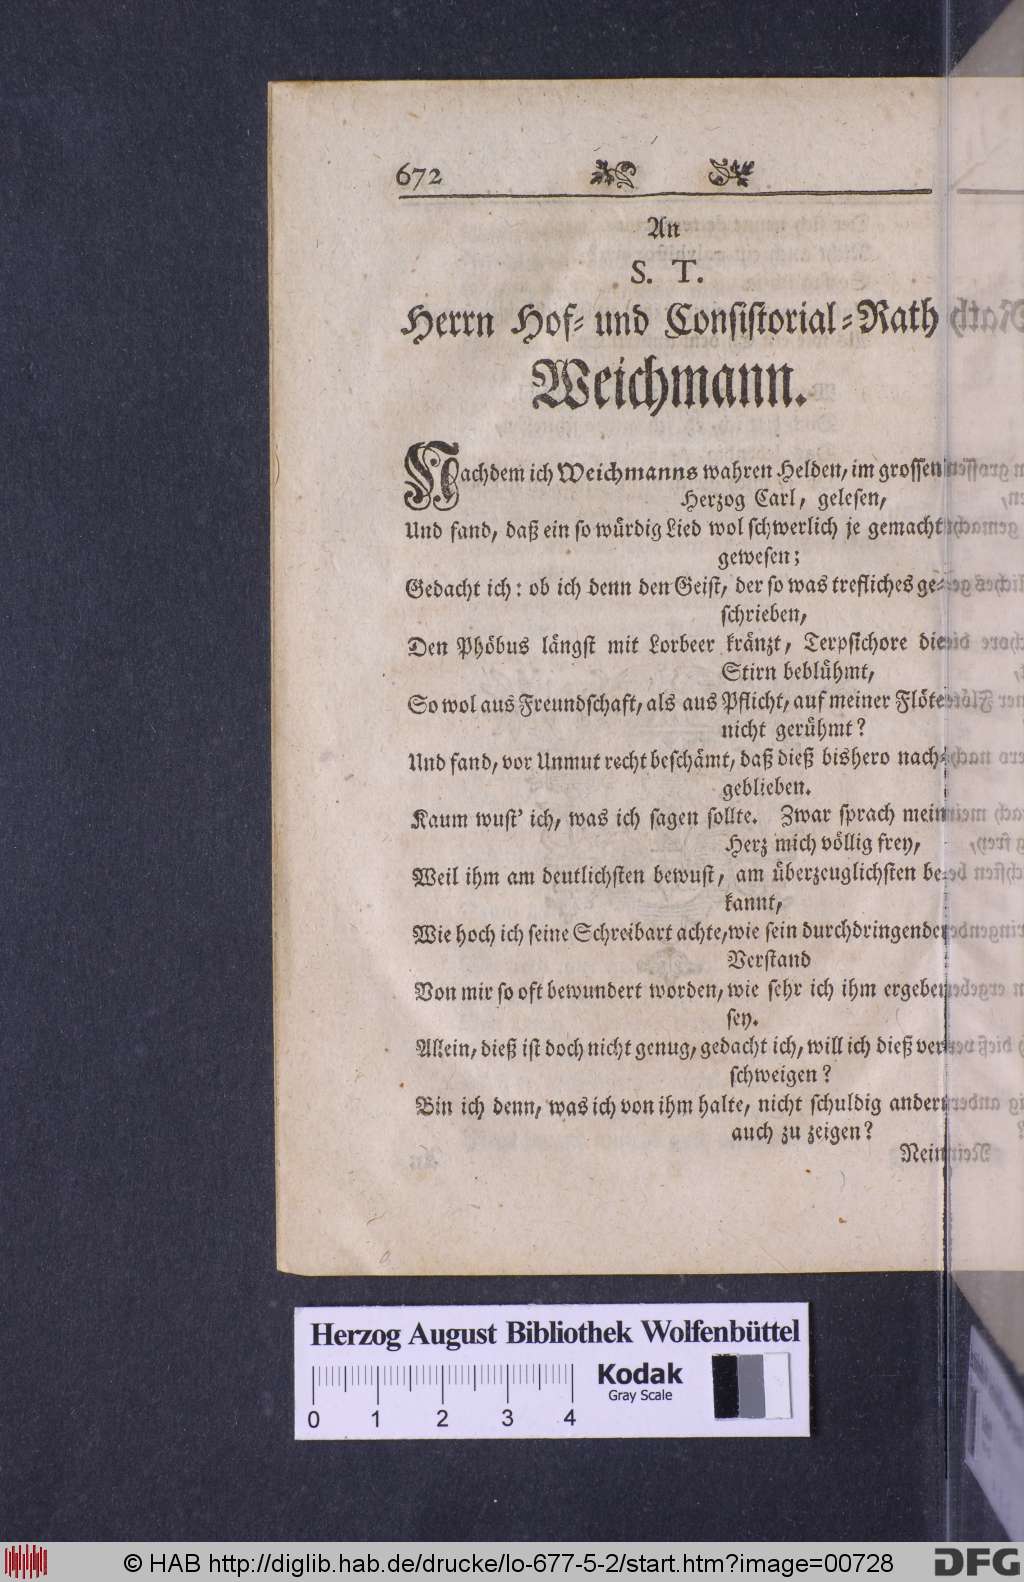 672
An
S. T.
Herrn Hof- und Consistorial-Rath
Weichmann.
Nachdem ich Weichmanns wahren Helden, im grossen
Herzog Carl, gelesen,
Und fand, daß ein so würdig Lied wol schwerlich je gemacht
gewesen;
Gedacht ich: ob ich denn den Geist, der so was trefliches ge-
schrieben,
Den Phöbus längst mit Lorbeer kränzt, Terpsichore die
Stirn beblühmt,
So wol aus Freundschaft, als aus Pflicht, auf meiner Flöte
nicht gerühmt?
Und fand, vor Unmut recht beschämt, daß dieß bishero nach-
geblieben.
Kaum wust' ich, was ich sagen sollte. Zwar sprach mein
Herz mich völlig frey,
Weil ihm am deutlichsten bewust, am überzeuglichsten be-
kannt,
Wie hoch ich seine Schreibart achte, wie sein durchdringender
Verstand
Von mir so oft bewundert worden, wie sehr ich ihm ergeben
sey.
Allein, dieß ist doch nicht genug, gedacht ich, will ich dieß ver-
schweigen?
Bin ich denn, was ich von ihm halte, nicht schuldig andern
auch zu zeigen?
Nein
Herzog August Bibliothek Wolfenbüttel
Kodak
Gray Scale
0 1 2 3 4
© HAB http://diglib.hab.de/drucke/lo-677-5-2/start.htm?image=00728
DFG